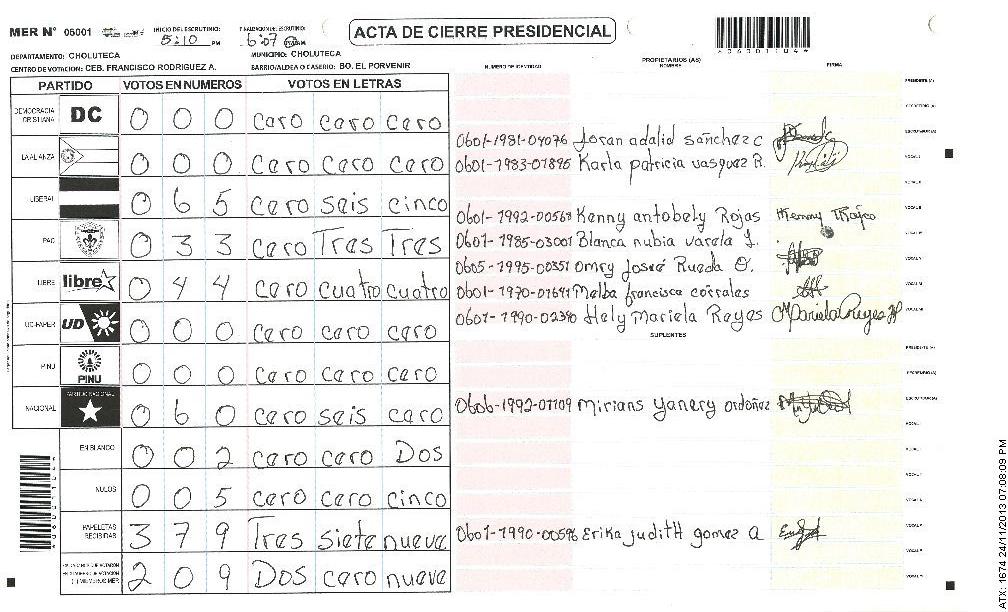 MER N° 06001
INICIO DEL ESCRUTINIO: 5:10 PM
FINALIZACION DEL ESCRUTINIO: 6:07 PM
ACTA DE CIERRE PRESIDENCIAL
DEPARTAMENTO: CHOLUTECA
MUNICIPIO: CHOLUTECA
CENTRO DE VOTACION: CEB. FRANCISCO RODRIGUEZ A.
BARRIO/ALDEA O CASERIO: BO. EL PORVENIR
PARTIDO VOTOS EN NUMEROS VOTOS EN LETRAS
DEMOCRACIA CRISTIANA DC 0 0 0 caro caro caro
LA ALIANZA 0 0 0 caro caro caro
LIBERAL 0 6 5 caro sais cinco
PAC 0 3 3 caro Tras Tras
LIBRE libre 0 4 4 caro cuatro cuatro
UD-FAPER UD 0 0 0 caro caro caro
PINU PINU 0 0 0 caro caro caro
NACIONAL PARTIDO NACIONAL 0 6 0 caro sais caro
EN BLANCO 0 0 2 caro caro Dos
NULOS 0 0 5 caro caro cinco
PAPELETAS RECIBIDAS 3 7 9 Tras siata nuava
2 0 9 Dos caro nuava
NUMERO DE IDENTIDAD PROPIETARIOS (AS) NOMBRE FIRMA
PRESIDENTE (A)
SECRETARIO (A)
ESCRUTADOR (A)
0601-1981-04076 Joran adalid sañchez c
0601-1983-01895 Karla patricia vasquez R.
0601-1992-00568 Kenny antobely Rojas
0601-1985-03001 Blanca nubia varela L.
0605-1995-00351 Omry Josué Rueda O.
0601-1970-01641 Melba francisca corrales
0601-1990-02390 Hely Mariela Reyes
SUPLENTES
PRESIDENTE (A)
SECRETARIO (A)
ESCRUTADOR (A)
0606-1992-01109 Mirians yanery ordoñez
0601-1990-00596 Erika judith gomez a
ATX: 1674 24/11/2013 07:08:09 PM